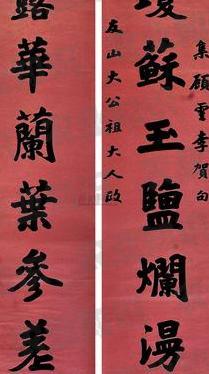 集顧雲李賀句
蘇玉鹽爛漫
友山大公祖大人政
露華蘭葉參差